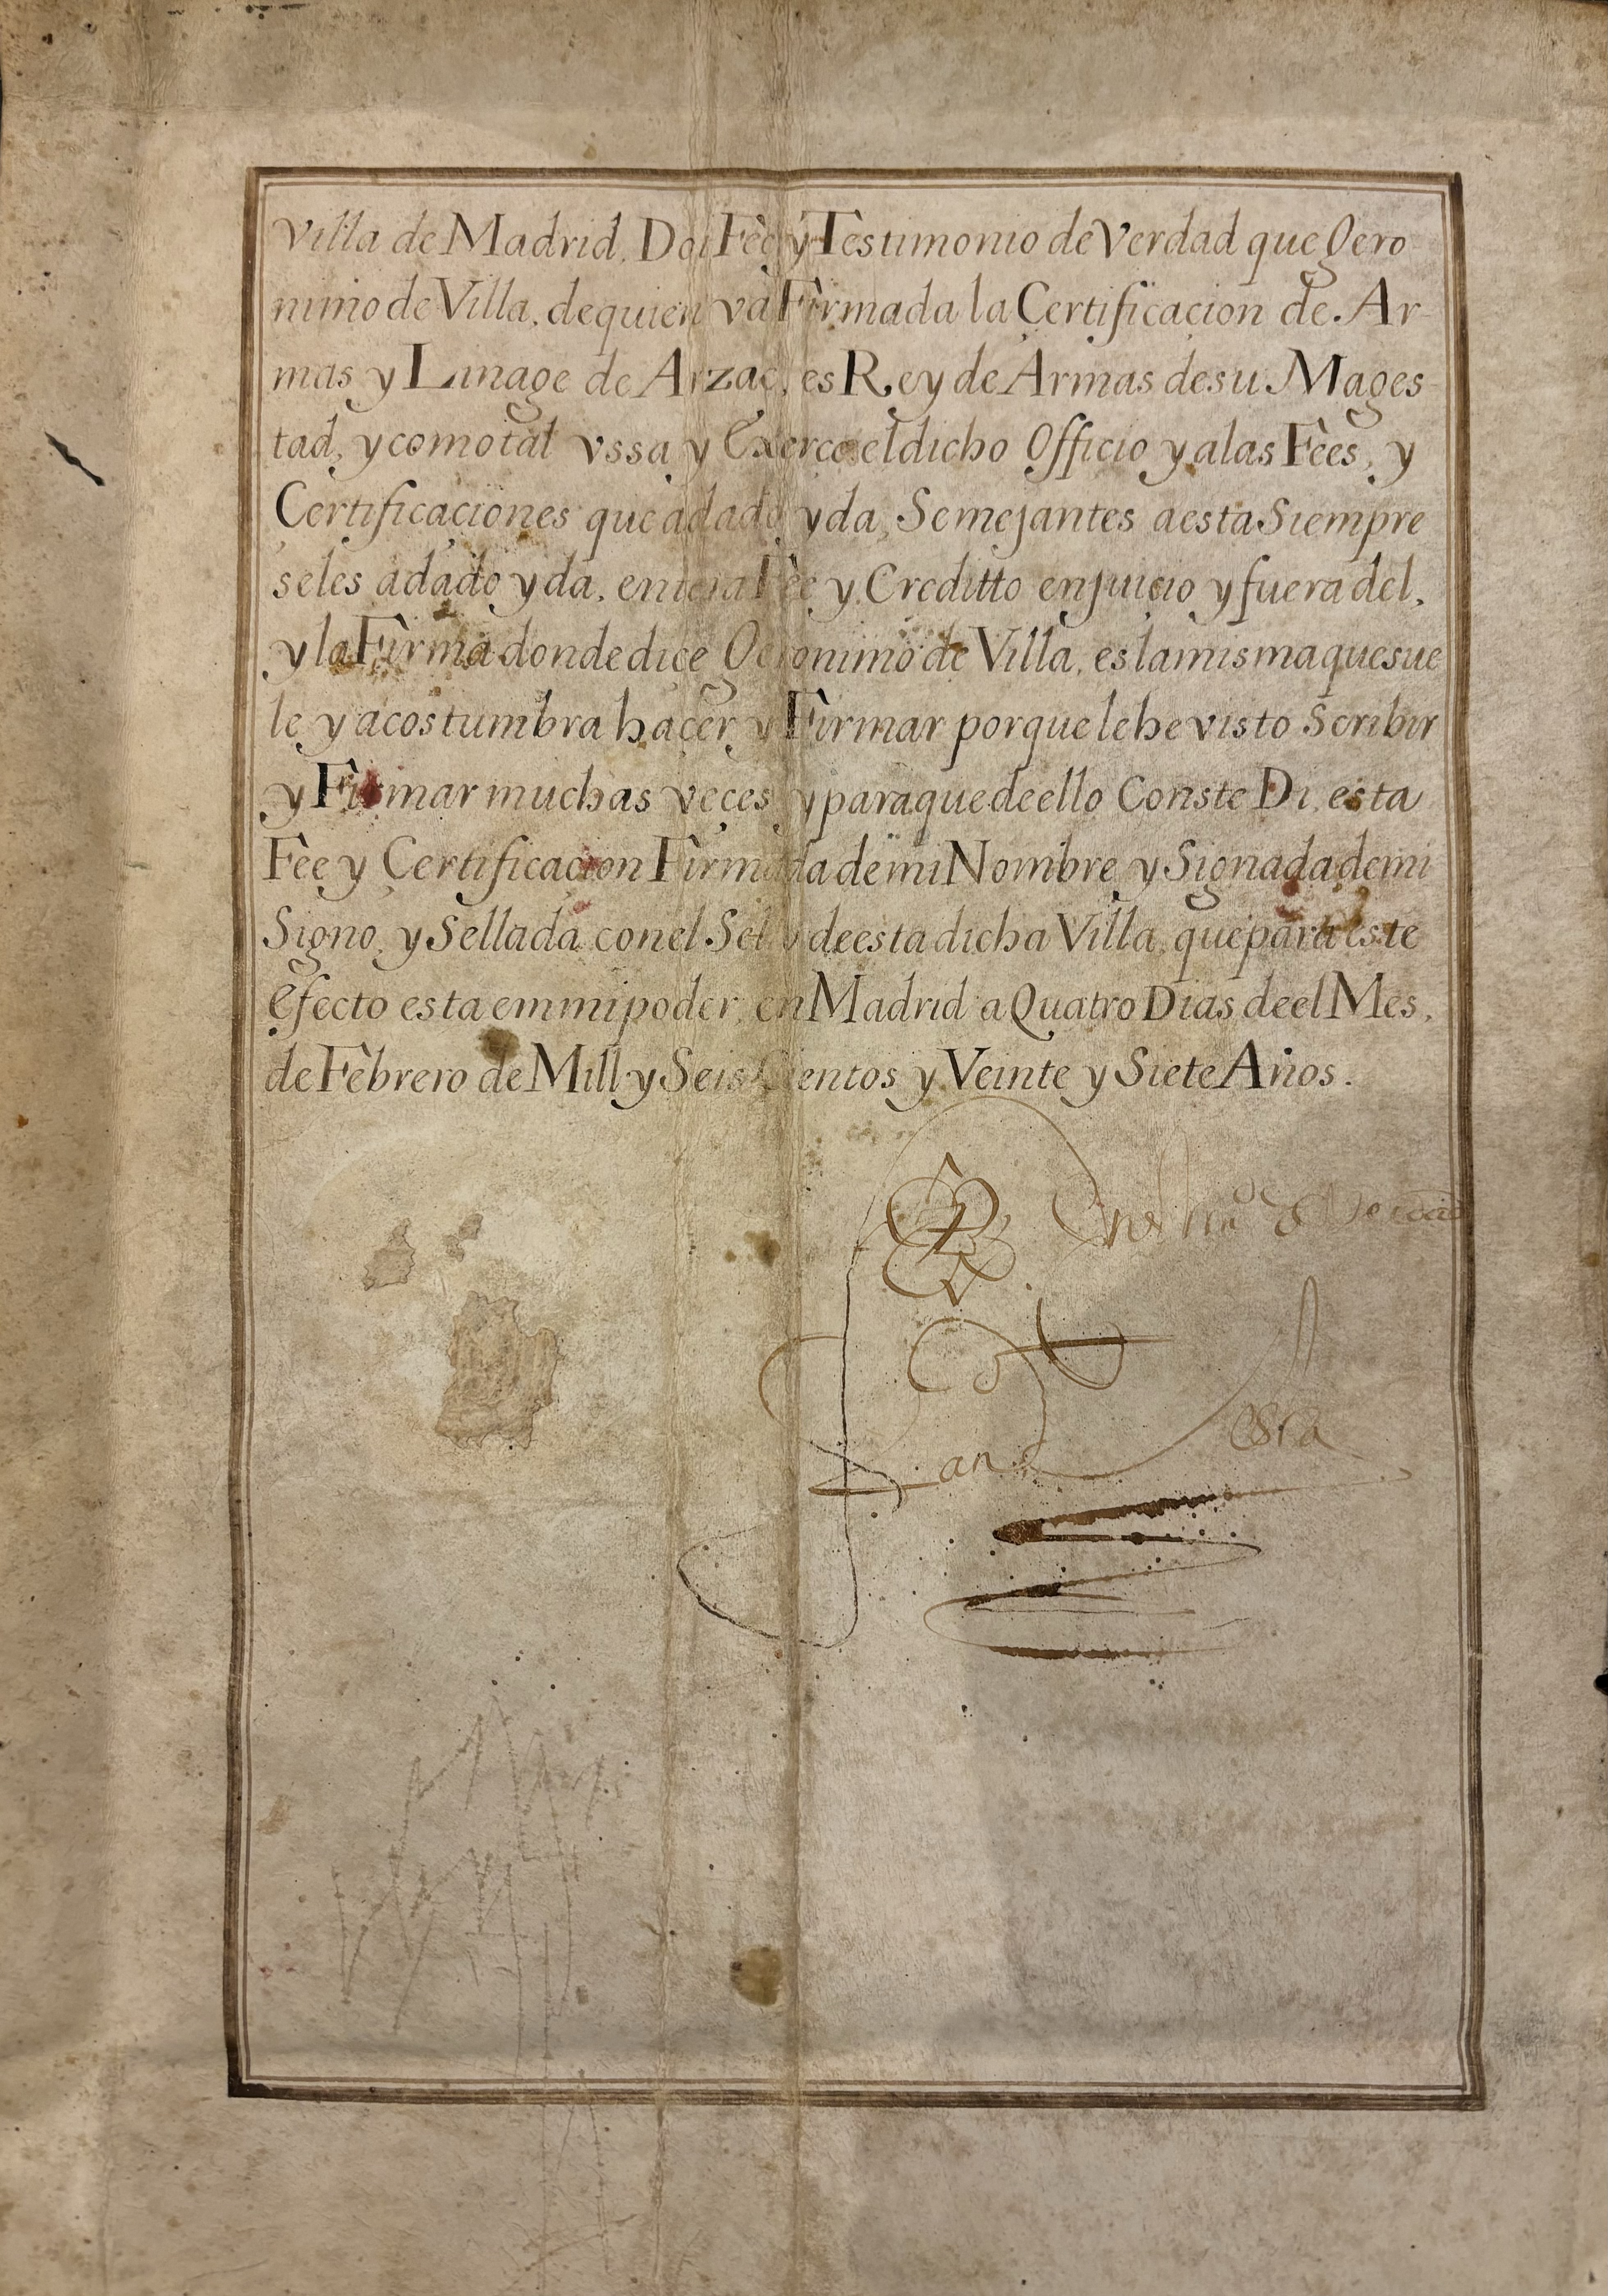 Villa de Madrid. Doi Fèe y Testimonio de Verdad que Gero
nimo de Villa, de quien và Firmada la Certificacion de Ar-
mas y Linage de Arzac, es Rey de Armas de su Mages-
tad, y como tal vssa y Exerce el dicho Officio y a las Fèes, y
Certificaciones que a dado y da, Semejantes a esta Siempre
se les a dado y da, entera Fèe y Creditto en juicio y fuera del,
y la Firma donde dice Geronimo de Villa, es la misma que sue
le y acostumbra haçer y Firmar porque le he visto Scribir
y Firmar muchas veçes y para que de ello Conste Di esta
Fèe y Certificacion Firmada de mi Nombre y Signada de mi
Signo, y Sellada con el Sello de esta dicha Villa, que para este
Efecto esta em mi poder, en Madrid a Quatro Dias de el Mes,
de Febrero de Mill y Seis Cientos y Veinte y Siete Años.